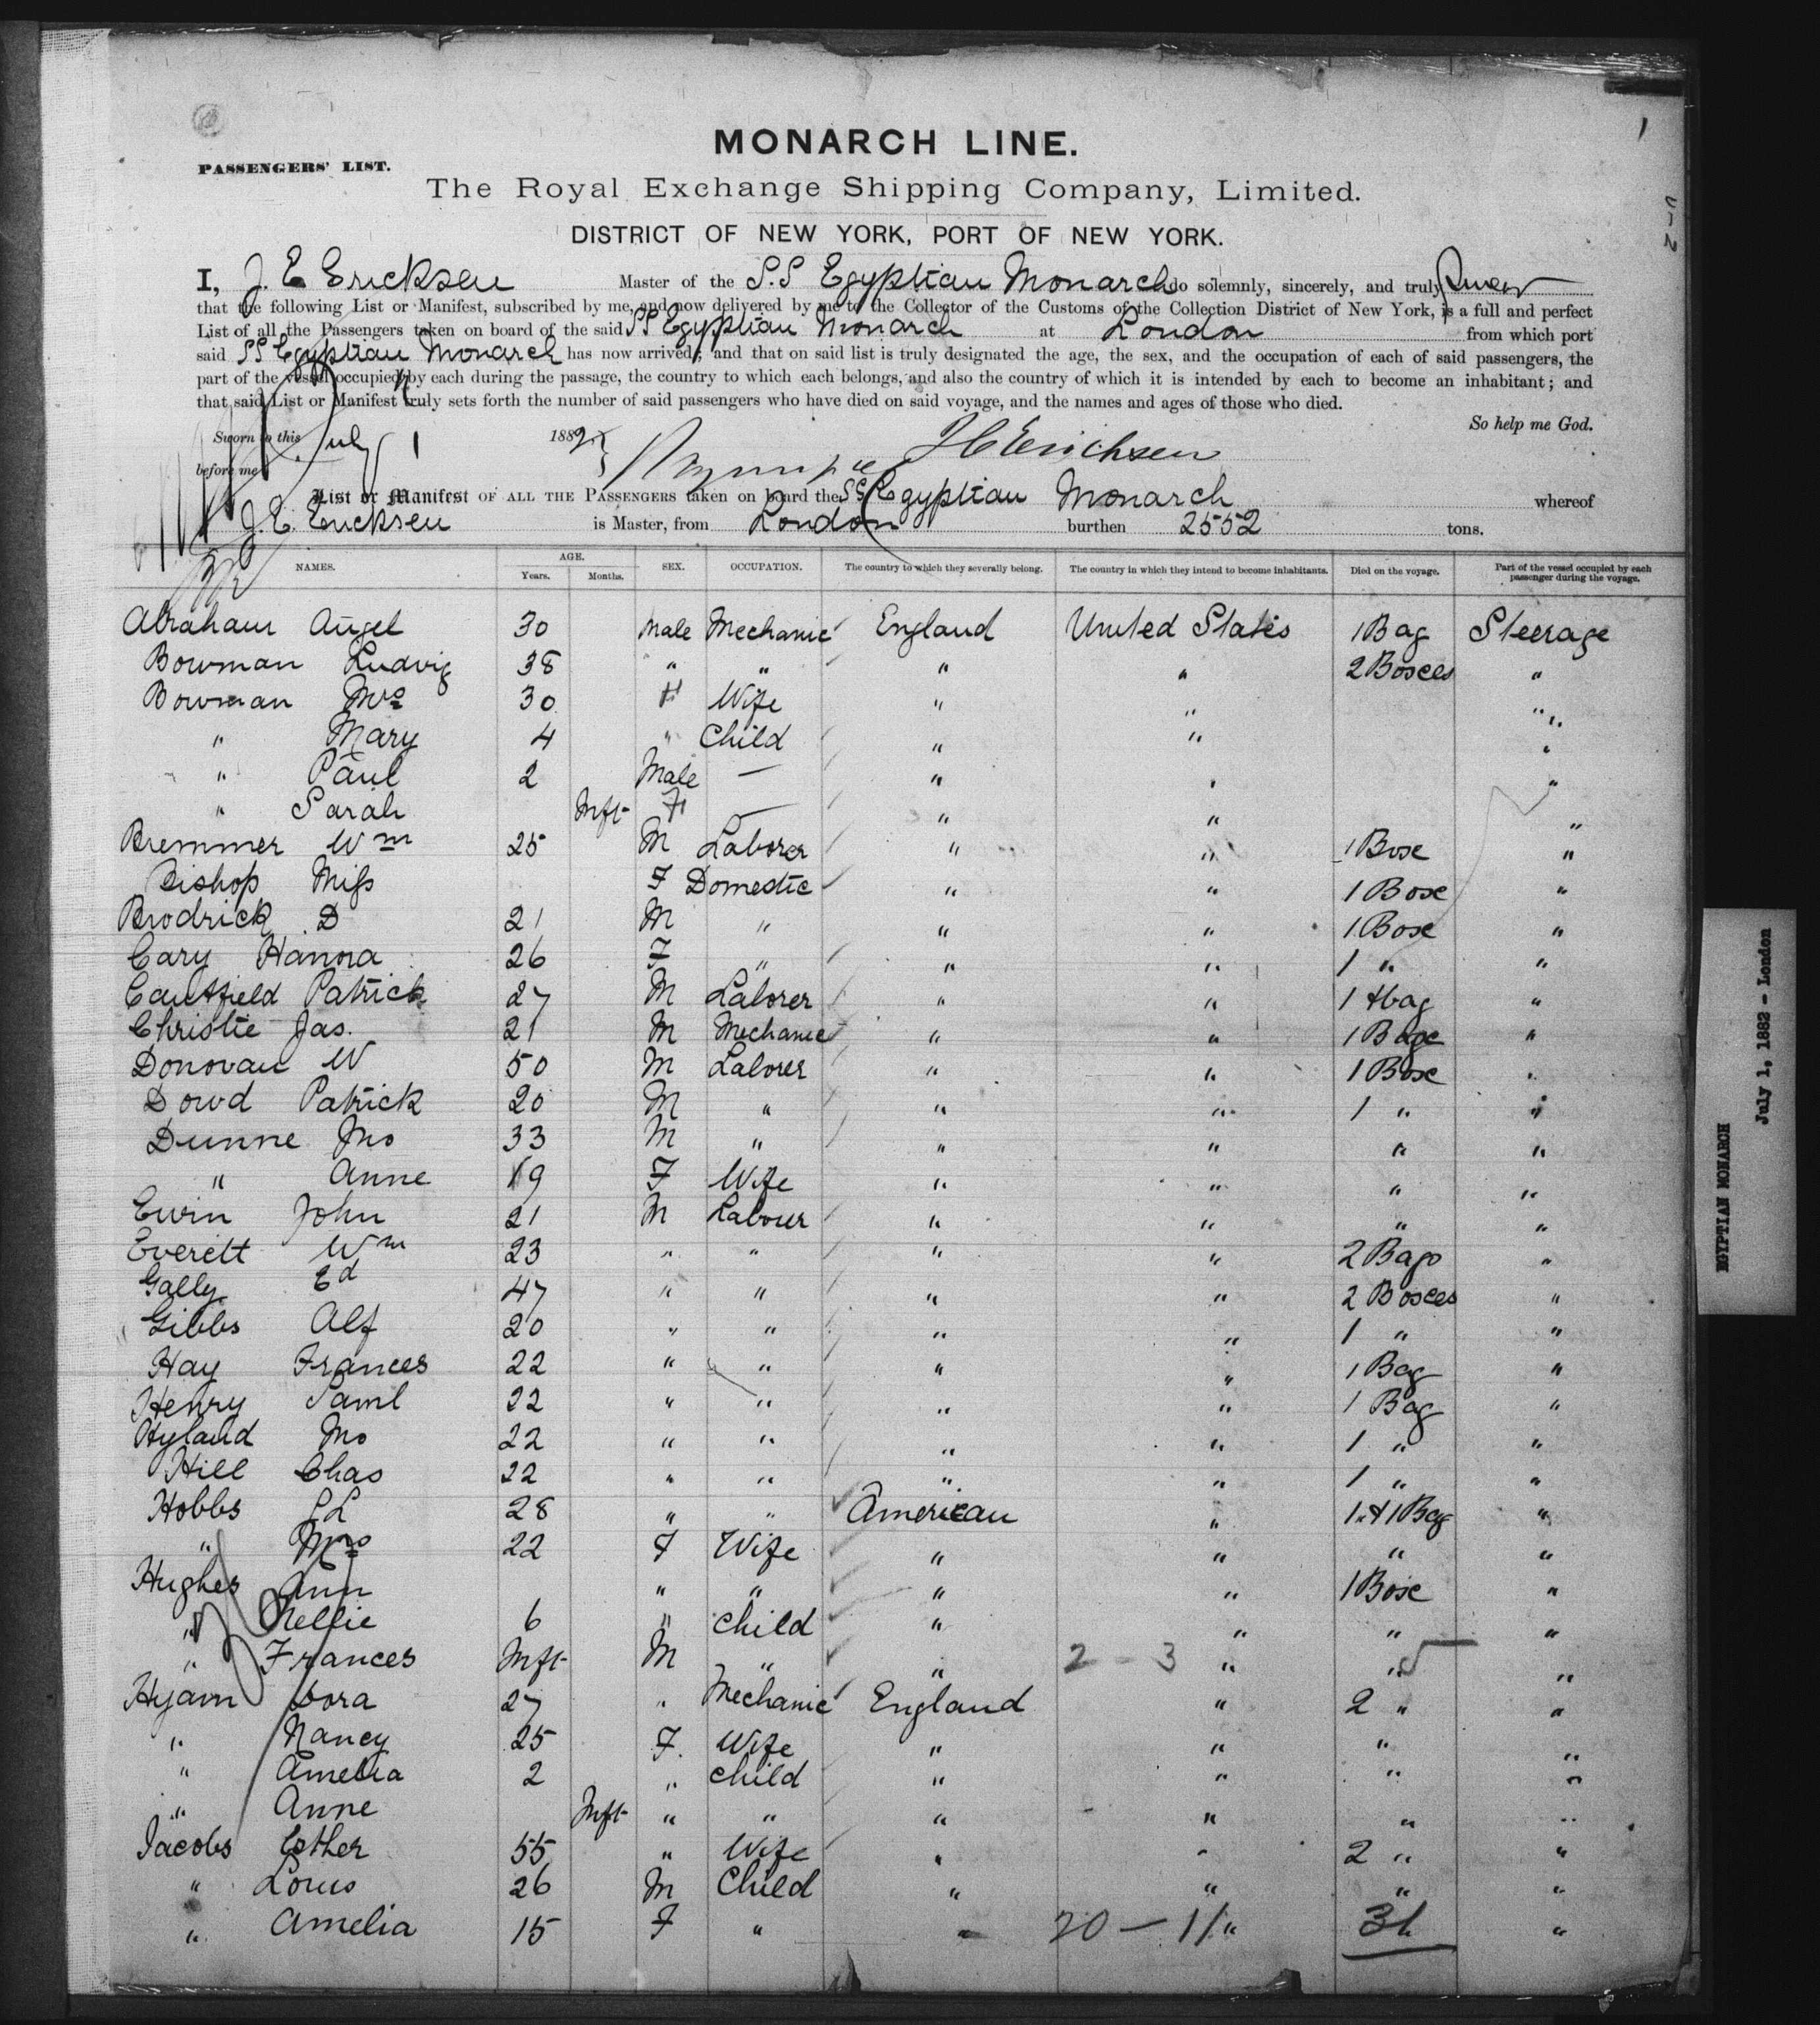 1
PASSENGERS' LIST.
MONARCH LINE.
The Royal Exchange Shipping Company, Limited.
DISTRICT OF NEW YORK, PORT OF NEW YORK.
I, J. E Ericksen Master of the S.S Egyptian Monarch do solemnly, sincerely, and truly Swear
that the following List or Manifest, subscribed by me, and now delivered by me to the Collector of the Customs of the Collection District of New York, is a full and perfect
List of all the Passengers taken on board of the said SS Egyptian Monarch at London from which port
said SS Egyptian Monarch has now arrived; and that on said list is truly designated the age, the sex, and the occupation of each of said passengers, the
part of the vessel occupied by each during the passage, the country to which each belongs, and also the country of which it is intended by each to become an inhabitant; and
that said List or Manifest truly sets forth the number of said passengers who have died on said voyage, and the names and ages of those who died.
So help me God.
Sworn to this July 1 1882
before me
List or Manifest OF ALL THE PASSENGERS taken on board the SS Egyptian Monarch whereof
J. E. Ericksen is Master, from London burthen 2552 tons.
NAMES. AGE. Years. Months. SEX. OCCUPATION. The country to which they severally belong. The country in which they intend to become inhabitants. Died on the voyage. Part of the vessel occupied by each passenger during the voyage.
Abraham Angel 30 Male Mechanic England United States 1 Bag Steerage
Bowman Ludvig 38 " " " " 2 Boxes "
Bowman Mrs 30 F Wife " " "
" Mary 4 " Child " " "
" Paul 2 Male — " " "
" Sarah Inft F — " " "
Bremmer Wm 25 M Laborer " " 1 Box "
Bishop Miss F Domestic " " 1 Box "
Brodrick D 21 M " " " 1 Box "
Cary Hanora 26 F " " " 1 " "
Caulfield Patrick 27 M Laborer " " 1 "
Christie Jas. 21 M Mechanic " " 1 "
Donovan W 50 M Laborer " " 1 Box "
Dowd Patrick 20 M " " " 1 " "
Dunne Jno 33 M " " " " "
" Anne 19 F Wife " " " "
Ewin John 21 M Labour " " " "
Everett Wm 23 " " " " 2 Bags "
Gally Ed 47 " " " " 2 Boxes "
Gibbs Alf 20 " " " " 1 " "
Hay Frances 22 " " " " 1 Bag "
Henry Saml 22 " " " " 1 Bag "
Hyland Jno 22 " " " " 1 " "
Hill Chas 22 " " " " 1 " "
Hobbs 28 " " American " "
" Mrs 22 F Wife " " " "
Hughes Ann " " " " 1 Box "
" Nellie 6 " Child " " " "
" Frances Inft M " " 2 - 3 " " "
Hyam Dora 27 " Mechanic England " 2 " "
" Nancy 25 F. Wife " " " "
" Amelia 2 " Child " " " "
" Anne Inft " " " " " "
Jacobs Esther 55 " Wife " " 2 " "
" Louis 26 M Child " " " "
" Amelia 15 F " " 20 - 11 " "
EGYPTIAN MONARCH
July 1, 1882 - London